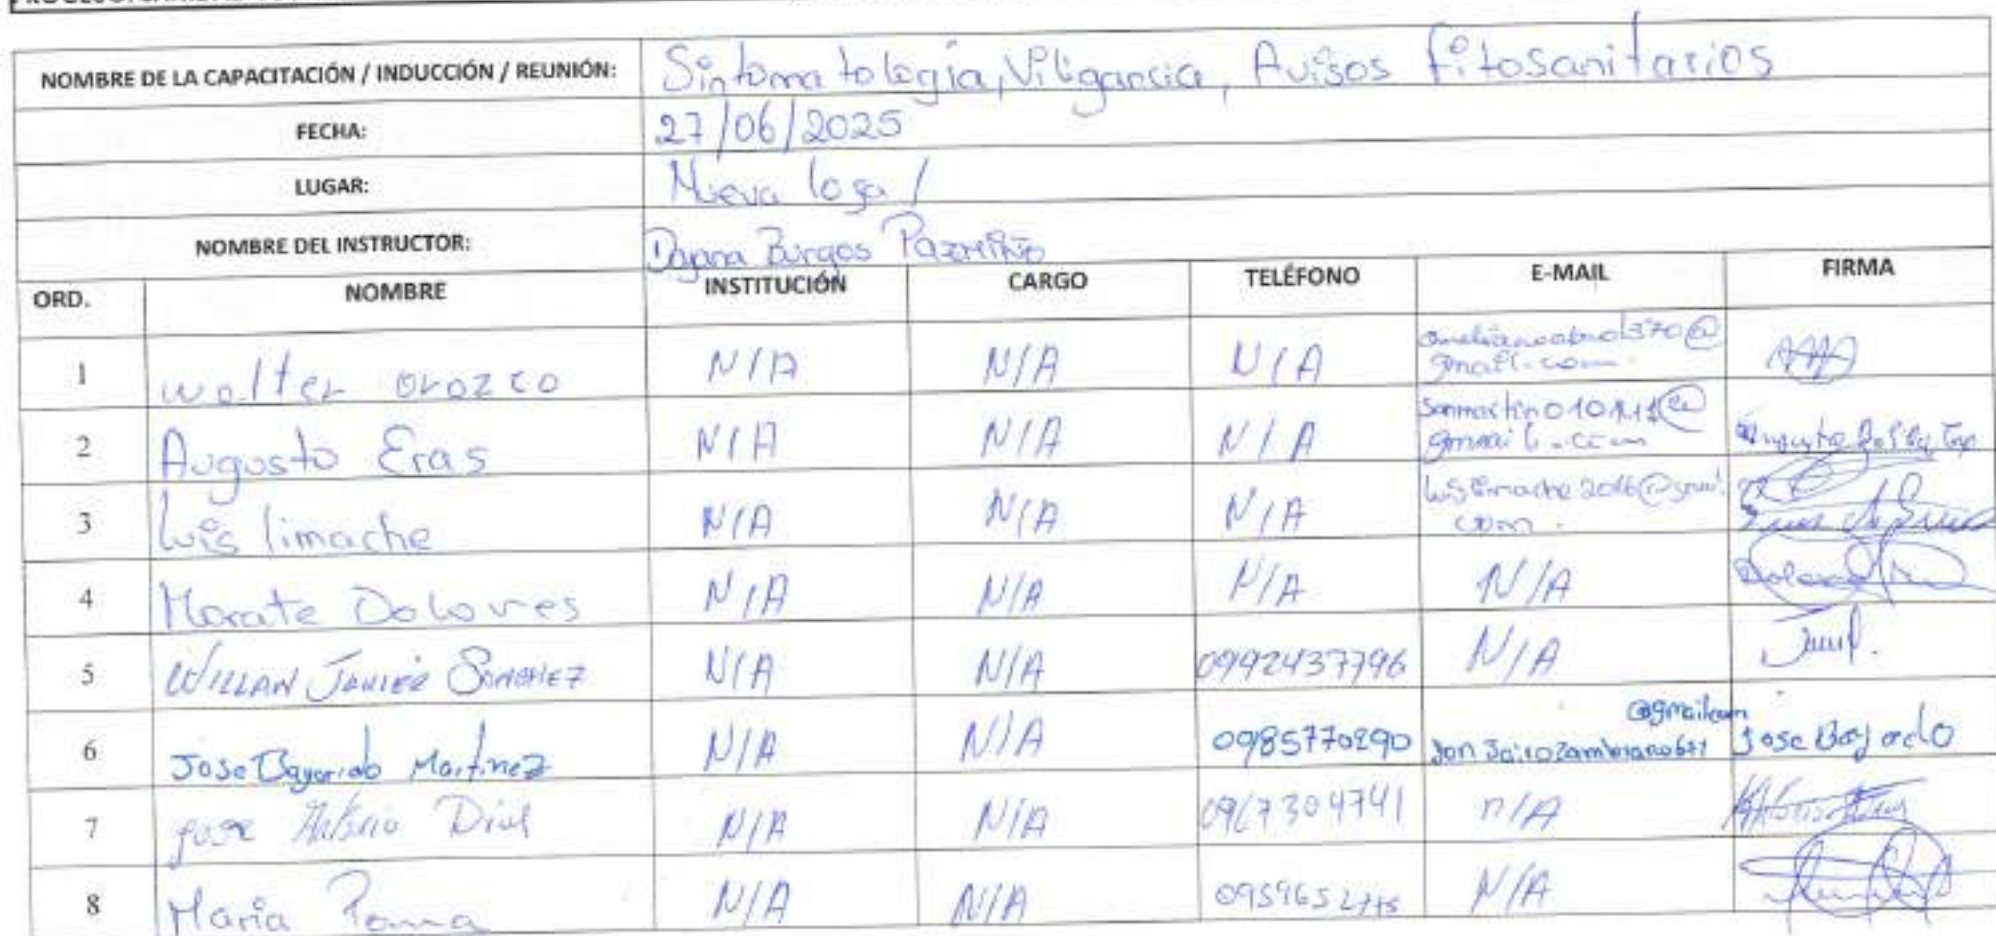 NOMBRE DE LA CAPACITACIÓN / INDUCCIÓN / REUNIÓN: Sintomatología, Viligancia, Avisos fitosanitarios
FECHA: 27/06/2025
LUGAR: Nueva loja /
NOMBRE DEL INSTRUCTOR: Dayana Burgos Pazmiño
ORD. NOMBRE INSTITUCIÓN CARGO TELÉFONO E-MAIL FIRMA
1 walter orozco N/A N/A N/A
gmail.com
2 Augusto Eras N/A N/A N/A
gmail.com
3 luis limache N/A N/A N/A luislimache2016@gmail.
com.
4 Morate Dolores N/A N/A N/A N/A
5 WILLAN JAVIER SANCHEZ N/A N/A 0992437796 N/A
@gmailcom
6 Jose Bayardo Martinez N/A N/A 0985770290 Jon Jairozambrano671 Jose Bayardo
7 Jose N/A N/A 0967304741 n/A
8 Maria Poma N/A N/A N/A